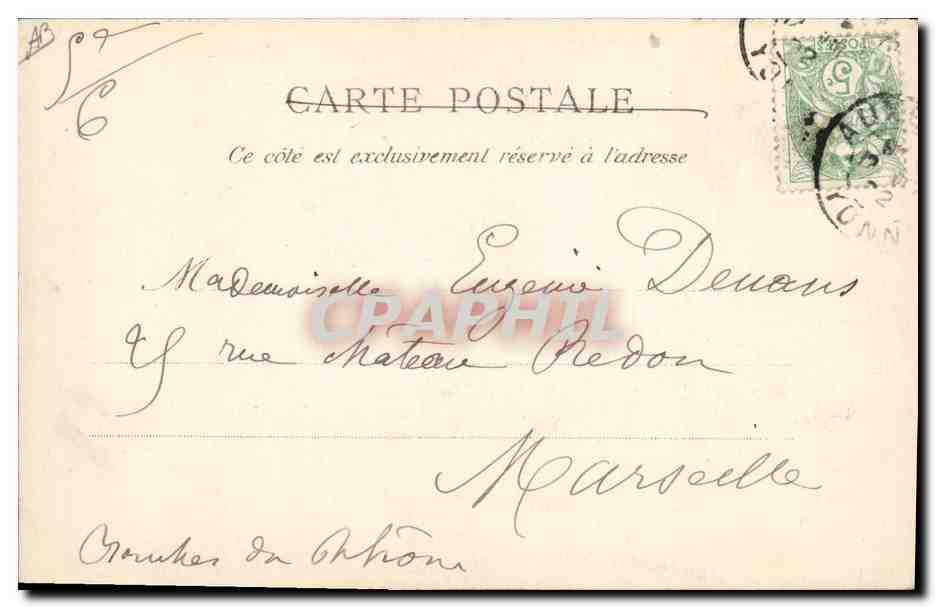 AB
5
6
CARTE POSTALE
Ce côté est exclusivement réservé à l'adresse
Mademoiselle Eugénie Denans
rue Chateau Redon
Marseille
Bouches du Rhône
CPAPHIL
POSTES
5
AUX
YONN